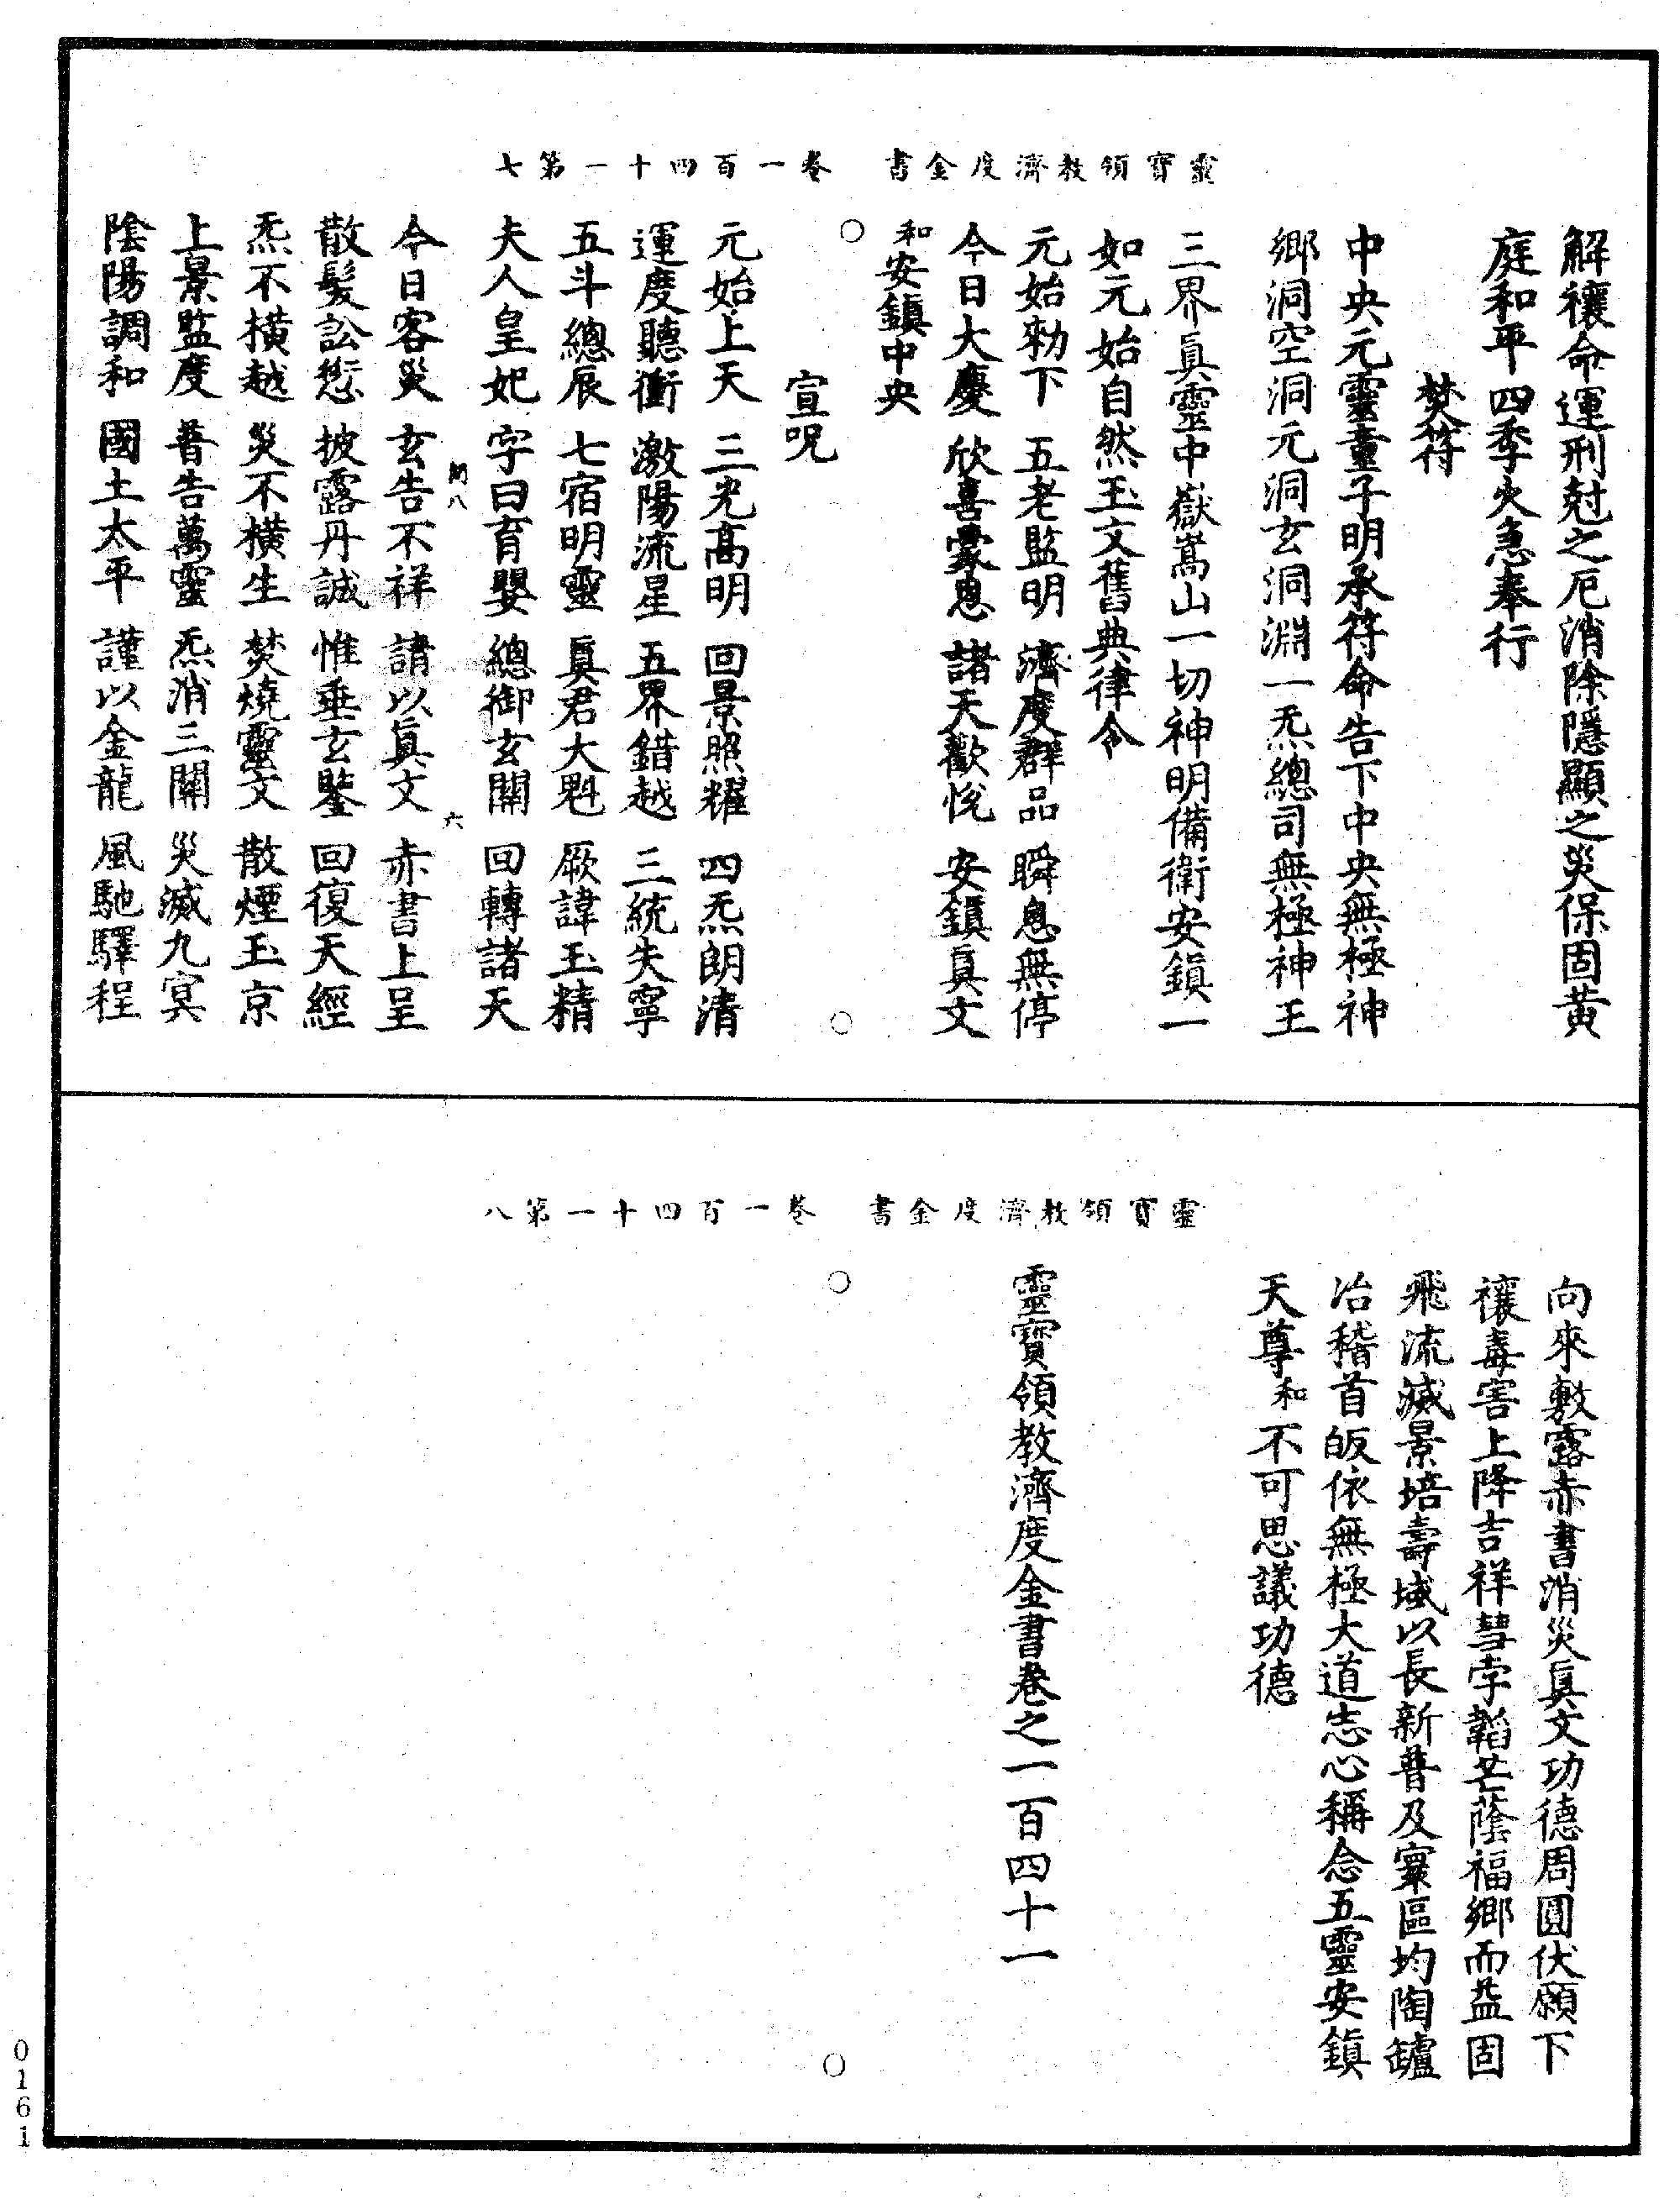 靈寶領教濟度金書　卷一百四十一第七
解禳命運刑尅之厄消除隱顯之災保固黃
庭和平四季火急奉行
焚符
中央元靈童子明承符命告下中央無極神
鄉洞空洞元洞玄洞淵一炁總司無極神王
三界眞靈中嶽嵩山一切神明備衛安鎮一
如元始自然玉文舊典律令
元始勑下　五老監明　濟度群品　瞬息無停
今日大慶　欣喜蒙恩　諸天歡悅　安鎮眞文
和安鎮中央
宣呪
元始上天　三光高明　回景照耀　四炁朗清
運度聽衝　激陽流星　五界錯越　三統失寧
五斗總辰　七宿明靈　眞君大魁　厥諱玉精
夫人皇妃　字曰育嬰　總御玄關　回轉諸天
六
今日客災　玄告不祥　請以眞文　赤書上呈
散髮訟愆　披露丹誠　惟垂玄鑒　回復天經
炁不橫越　災不橫生　焚燒靈文　散煙玉京
上景監度　普告萬靈　炁消三關　災滅九冥
陰陽調和　國土太平　謹以金龍　風馳驛程
靈寶領教濟度金書　卷一百四十一第八
向來敷露赤書消災眞文功德周圓伏願下
禳毒害上降吉祥彗孛韜芒蔭福鄉而益固
飛流滅景培壽域以長新普及寰區均陶罏
冶稽首皈依無極大道志心稱念五靈安鎮
天尊和不可思議功德
靈寶領教濟度金書卷之一百四十一
0161